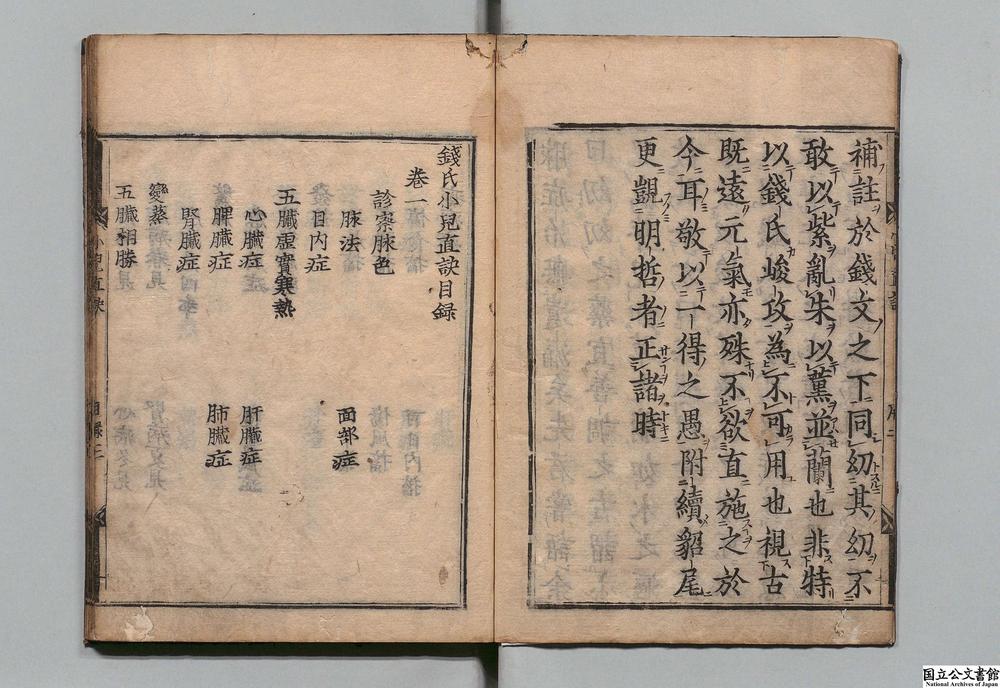 補註於錢文之下同幼其幼不
敢以紫亂朱以薰並蘭也非特
以錢氏峻攻為不可用也視古
既遠元氣亦殊不欲直施之於
今耳敬以一得之愚附續貂尾
更覬明哲者正諸時
錢氏小兒直訣目録
卷一
診察脉色
脉法 面部症
目内症
五臓虚實寒熱
心臓症 肝臓症
脾臓症 肺臓症
腎臓症
變蒸
五臓相勝
国立公文書館
National Archives of Japan